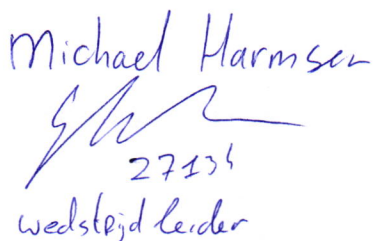 Michael Harmsen
wedstrijd leider